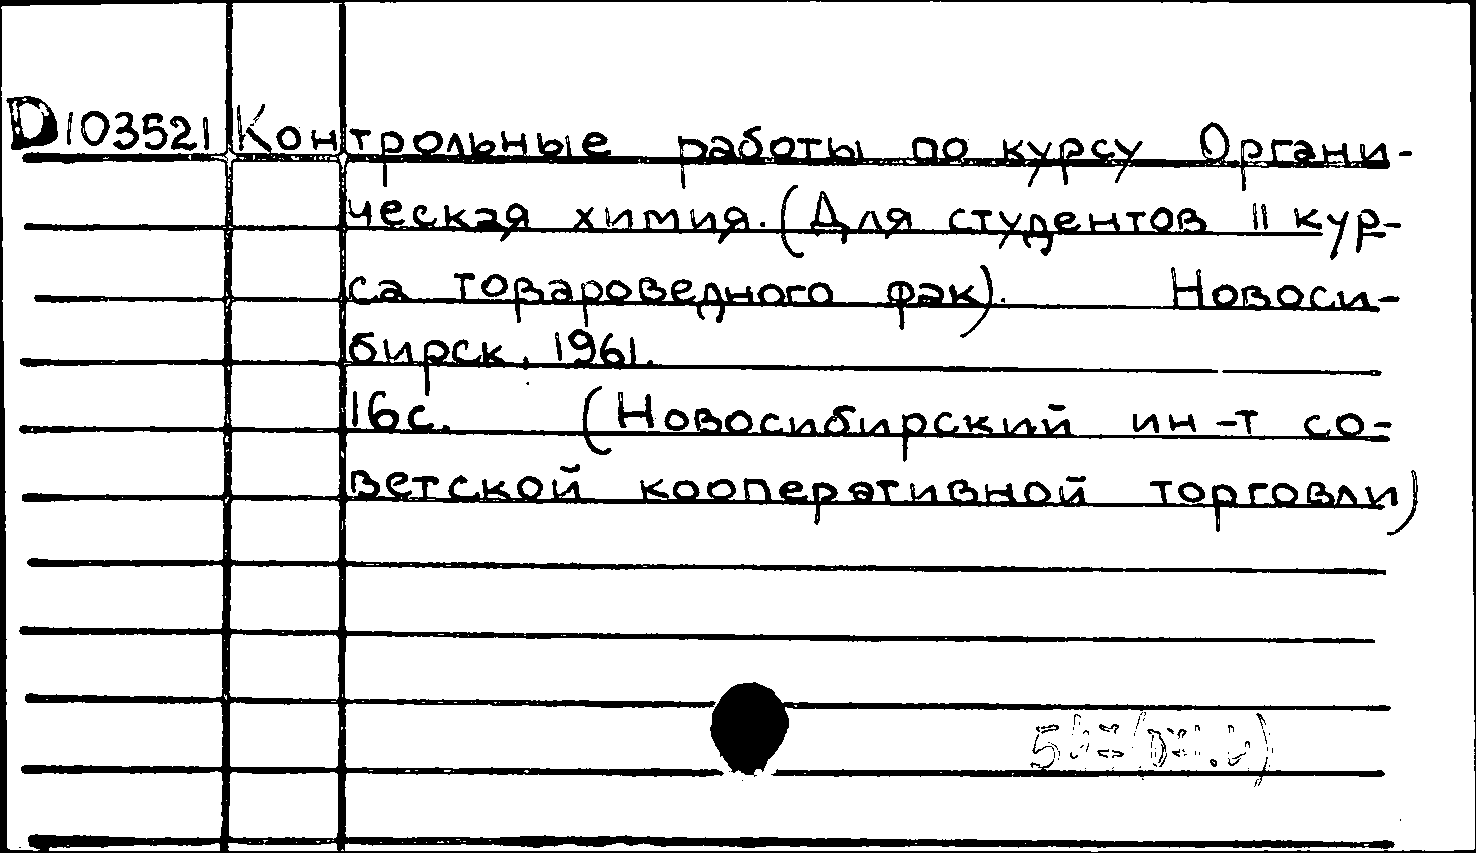 D103521 Контрольные работы по курсу Органи-
ческая химия. (Для студентов II кур-
са товароведного фак). Новоси-
бирск, 1961.
16с. (Новосибирский ин-т со-
ветской кооперативной торговли)